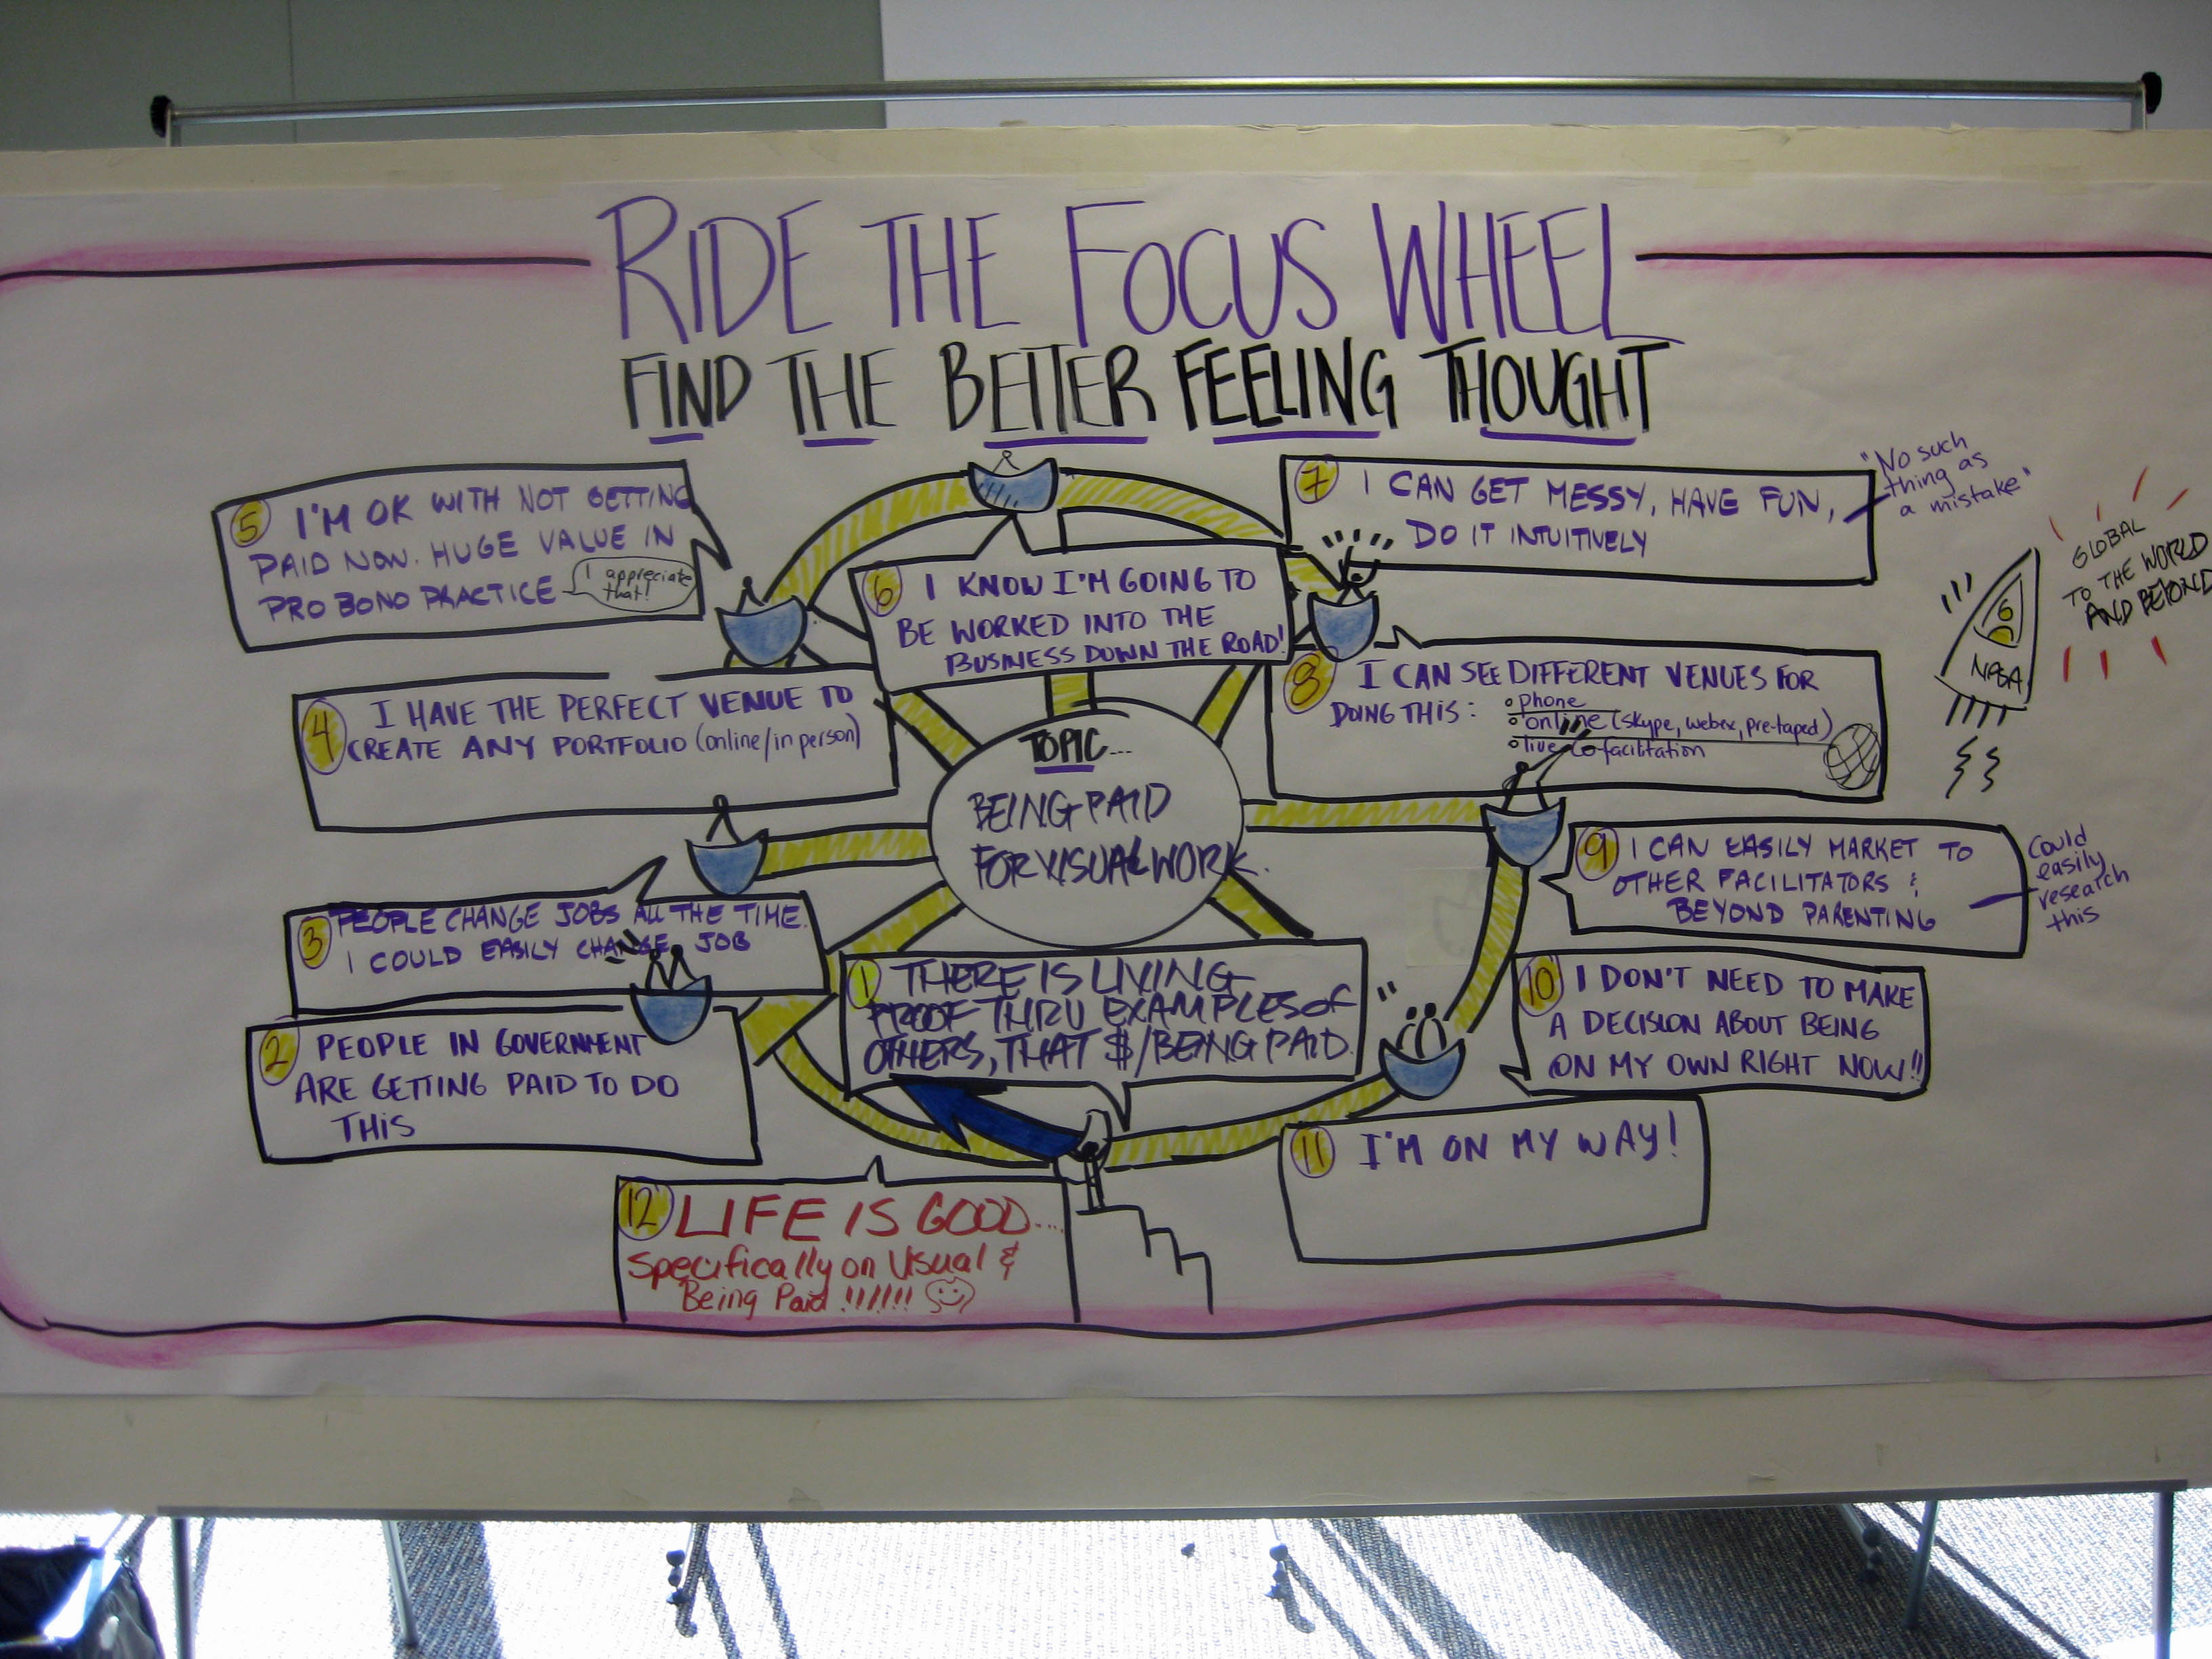 RIDE THE FOCUS WHEEL
FIND THE BETTER FEELING THOUGHT
TOPIC...
BEING PAID
FOR VISUAL WORK.
1 THERE IS LIVING
PROOF THRU EXAMPLES OF
OTHERS, THAT $/BEING PAID.
2 PEOPLE IN GOVERNMENT
ARE GETTING PAID TO DO
THIS
3 PEOPLE CHANGE JOBS ALL THE TIME.
I COULD EASILY CHANGE JOB
4 I HAVE THE PERFECT VENUE TO
CREATE ANY PORTFOLIO (online/in person)
5 I'M OK WITH NOT GETTING
PAID NOW. HUGE VALUE IN
PRO BONO PRACTICE
I appreciate
that!
6 I KNOW I'M GOING TO
BE WORKED INTO THE
BUSINESS DOWN THE ROAD!
7 I CAN GET MESSY, HAVE FUN,
DO IT INTUITIVELY
"No such
thing as
a mistake"
8 I CAN SEE DIFFERENT VENUES FOR
DOING THIS: • phone
• online (skype, webex, pre-taped)
• live co-facilitation
GLOBAL
TO THE WORLD
AND BEYOND
NASA
9 I CAN EASILY MARKET TO
OTHER FACILITATORS &
BEYOND PARENTING
Could
easily
research
this
10 I DON'T NEED TO MAKE
A DECISION ABOUT BEING
ON MY OWN RIGHT NOW!!
11 I'M ON MY WAY!
12 LIFE IS GOOD....
Specifically on Visual &
Being Paid !!!!!!!